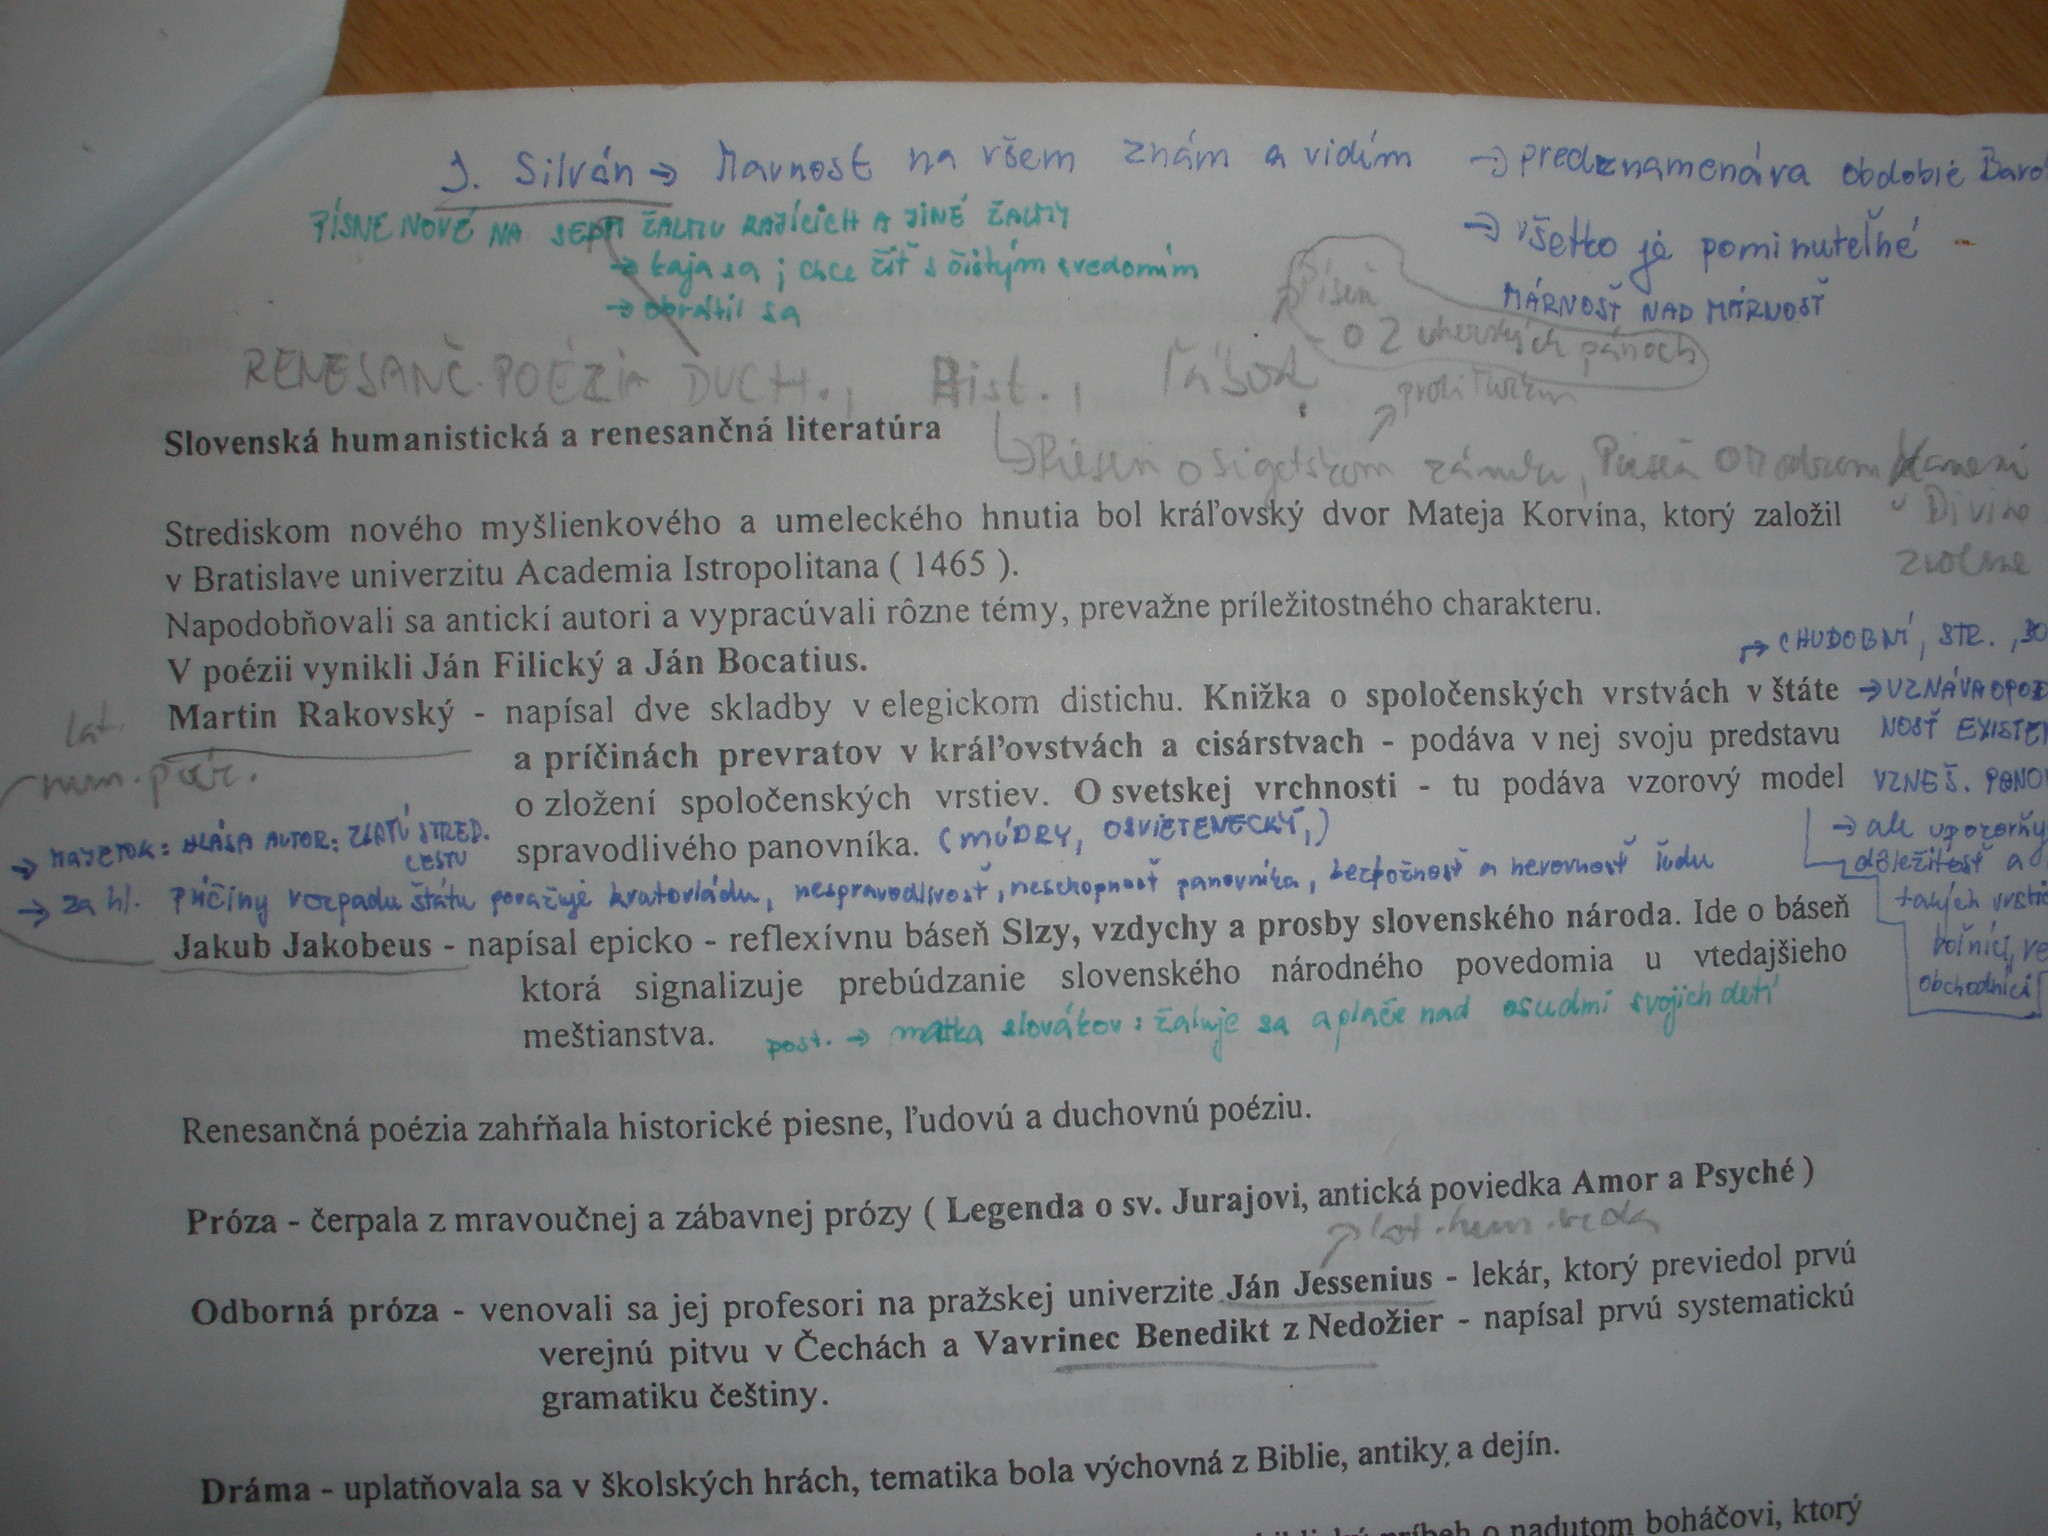 J. Silván → Marnost na všem znám a vidím → predznamenáva obdobie Baro
PÍSNE NOVÉ NA SEDM ŽALMU KAJÍCICH A JINÉ ŽALMY
→ všetko je pominuteľné -
→ kaja sa; chce žiť s čistým svedomím
→ obrátil sa
MÁRNOSŤ NAD MÁRNOSŤ
Píseň
o 2 uherských pánoch
RENESANČ. POÉZIA DUCH., Hist., Ľúbost.
proti Turkom
Slovenská humanistická a renesančná literatúra
Piesen o Sigetskom zámku, Piesen o
Divíne
Strediskom nového myšlienkového a umeleckého hnutia bol kráľovský dvor Mateja Korvína, ktorý založil
v Bratislave univerzitu Academia Istropolitana ( 1465 ).
Napodobňovali sa antickí autori a vypracúvali rôzne témy, prevažne príležitostného charakteru.
→ CHUDOBNÍ, STR.,
V poézii vynikli Ján Filický a Ján Bocatius.
lat.
hum. poéz.
Martin Rakovský - napísal dve skladby v elegickom distichu. Knižka o spoločenských vrstvách v štáte
a príčinách prevratov v kráľovstvách a cisárstvach - podáva v nej svoju predstavu
o zložení spoločenských vrstiev. O svetskej vrchnosti - tu podáva vzorový model
spravodlivého panovníka. (MÚDRY, OSVIETENECKÝ,)
→ UZNÁVA OPOD
NOSŤ EXISTEN
VZNEŠ. PANOV
→ ale upozorňu
dôležitosť a
takých vrstie
roľníci, re
obchodníci
→ MAJETOK: HLÁSA AUTOR: ZLATÚ STRED.
CESTU
→ za hl. príčiny rozpadu štátu považuje krutovládu, nespravodlivosť, neschopnosť panovníka, bezbožnosť a nerovnosť ľudu
Jakub Jakobeus - napísal epicko - reflexívnu báseň Slzy, vzdychy a prosby slovenského národa. Ide o báseň
ktorá signalizuje prebúdzanie slovenského národného povedomia u vtedajšieho
meštianstva.
post. → matka slovákov: žaluje sa a plače nad osudmi svojich detí
Renesančná poézia zahŕňala historické piesne, ľudovú a duchovnú poéziu.
Próza - čerpala z mravoučnej a zábavnej prózy ( Legenda o sv. Jurajovi, antická poviedka Amor a Psyché )
lat. hum. veda
Odborná próza - venovali sa jej profesori na pražskej univerzite Ján Jessenius - lekár, ktorý previedol prvú
verejnú pitvu v Čechách a Vavrinec Benedikt z Nedožier - napísal prvú systematickú
gramatiku češtiny.
Dráma - uplatňovala sa v školských hrách, tematika bola výchovná z Biblie, antiky a dejín.
príbeh o nadutom boháčovi, ktorý